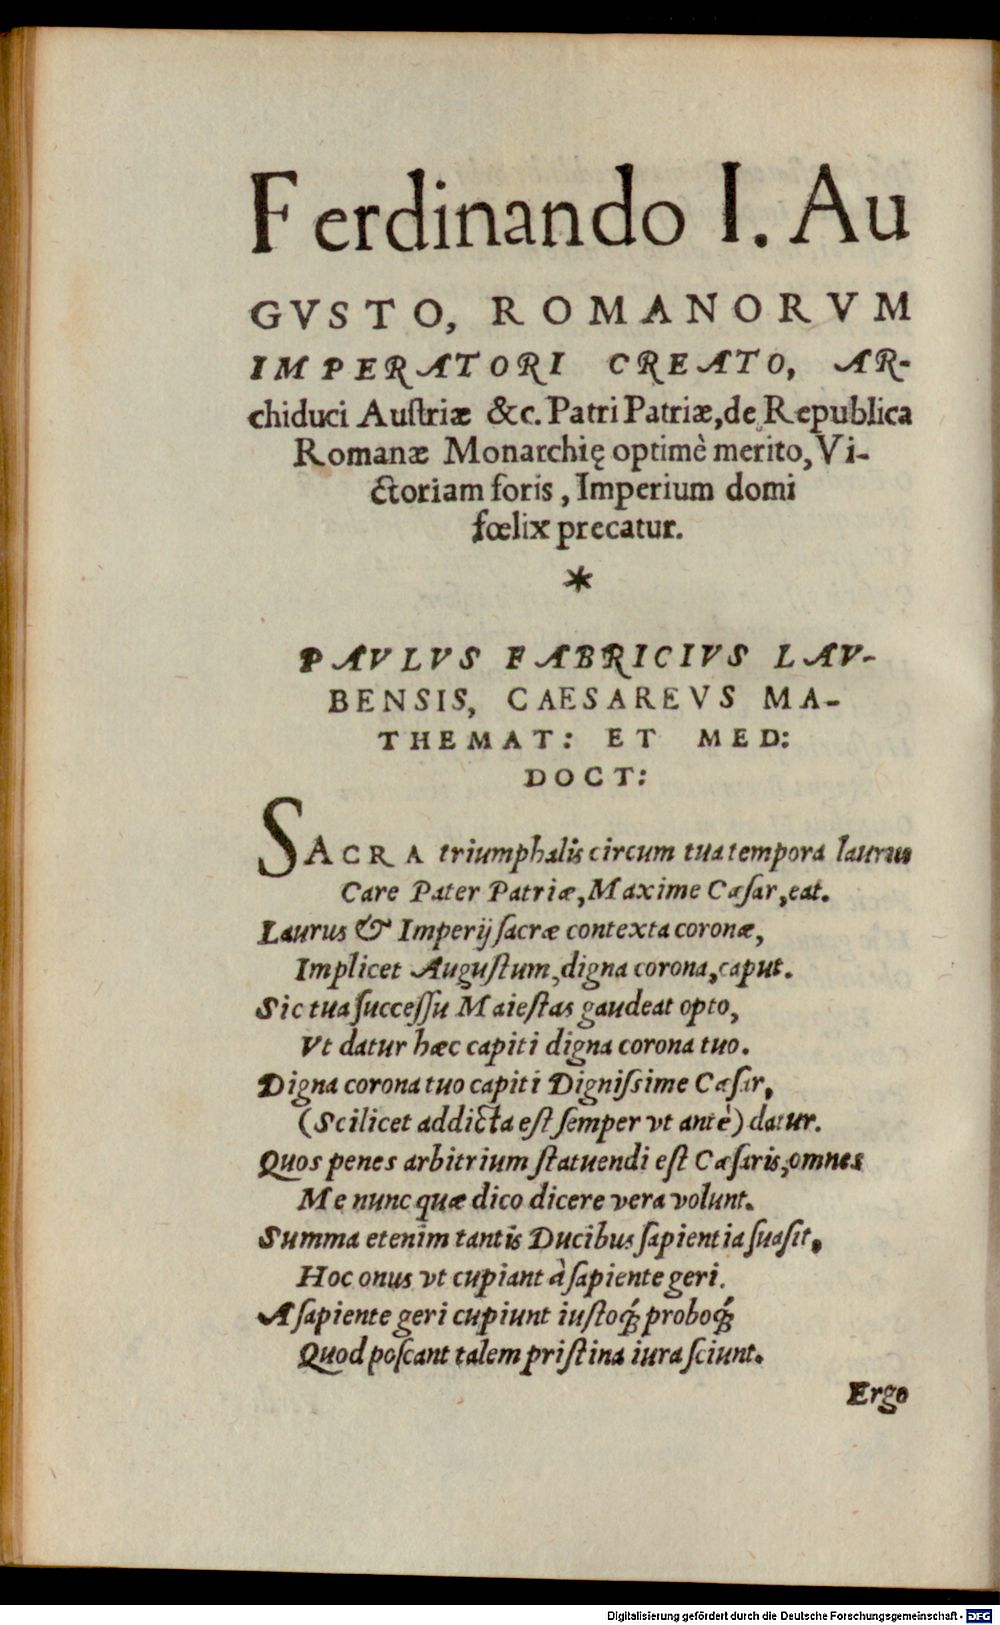 Ferdinando I. Au
GVSTO, ROMANORVM
IMPERATORI CREATO, AR-
chiduci Auſtriæ &c. Patri Patriæ, de Republica
Romanæ Monarchię optimè merito, Vi-
ctoriam foris, Imperium domi
fœlix precatur.
*
PAVLVS FABRICIVS LAV-
BENSIS, CAESAREVS MA-
THEMAT: ET MED:
DOCT:
SACRA triumphalis circum tua tempora laurus
Care Pater Patriæ, Maxime Cæſar, eat.
Laurus & Imperij ſacræ contexta coronæ,
Implicet Auguſtum, digna corona, caput.
Sic tua ſucceſſu Maieſtas gaudeat opto,
Vt datur hæc capiti digna corona tuo.
Digna corona tuo capiti Digniſsime Cæſar,
(Scilicet addicta eſt ſemper vt antè) datur.
Quos penes arbitrium ſtatuendi eſt Cæſaris, omnes
Me nunc quæ dico dicere vera volunt.
Summa etenim tantis Ducibus ſapientia ſuaſit,
Hoc onus vt cupiant à ſapiente geri.
A ſapiente geri cupiunt iuſtoq́ꝫ proboq́ꝫ
Quod poſcant talem priſtina iura ſciunt.
Ergo
Digitalisierung gefördert durch die Deutsche Forschungsgemeinschaft - DFG